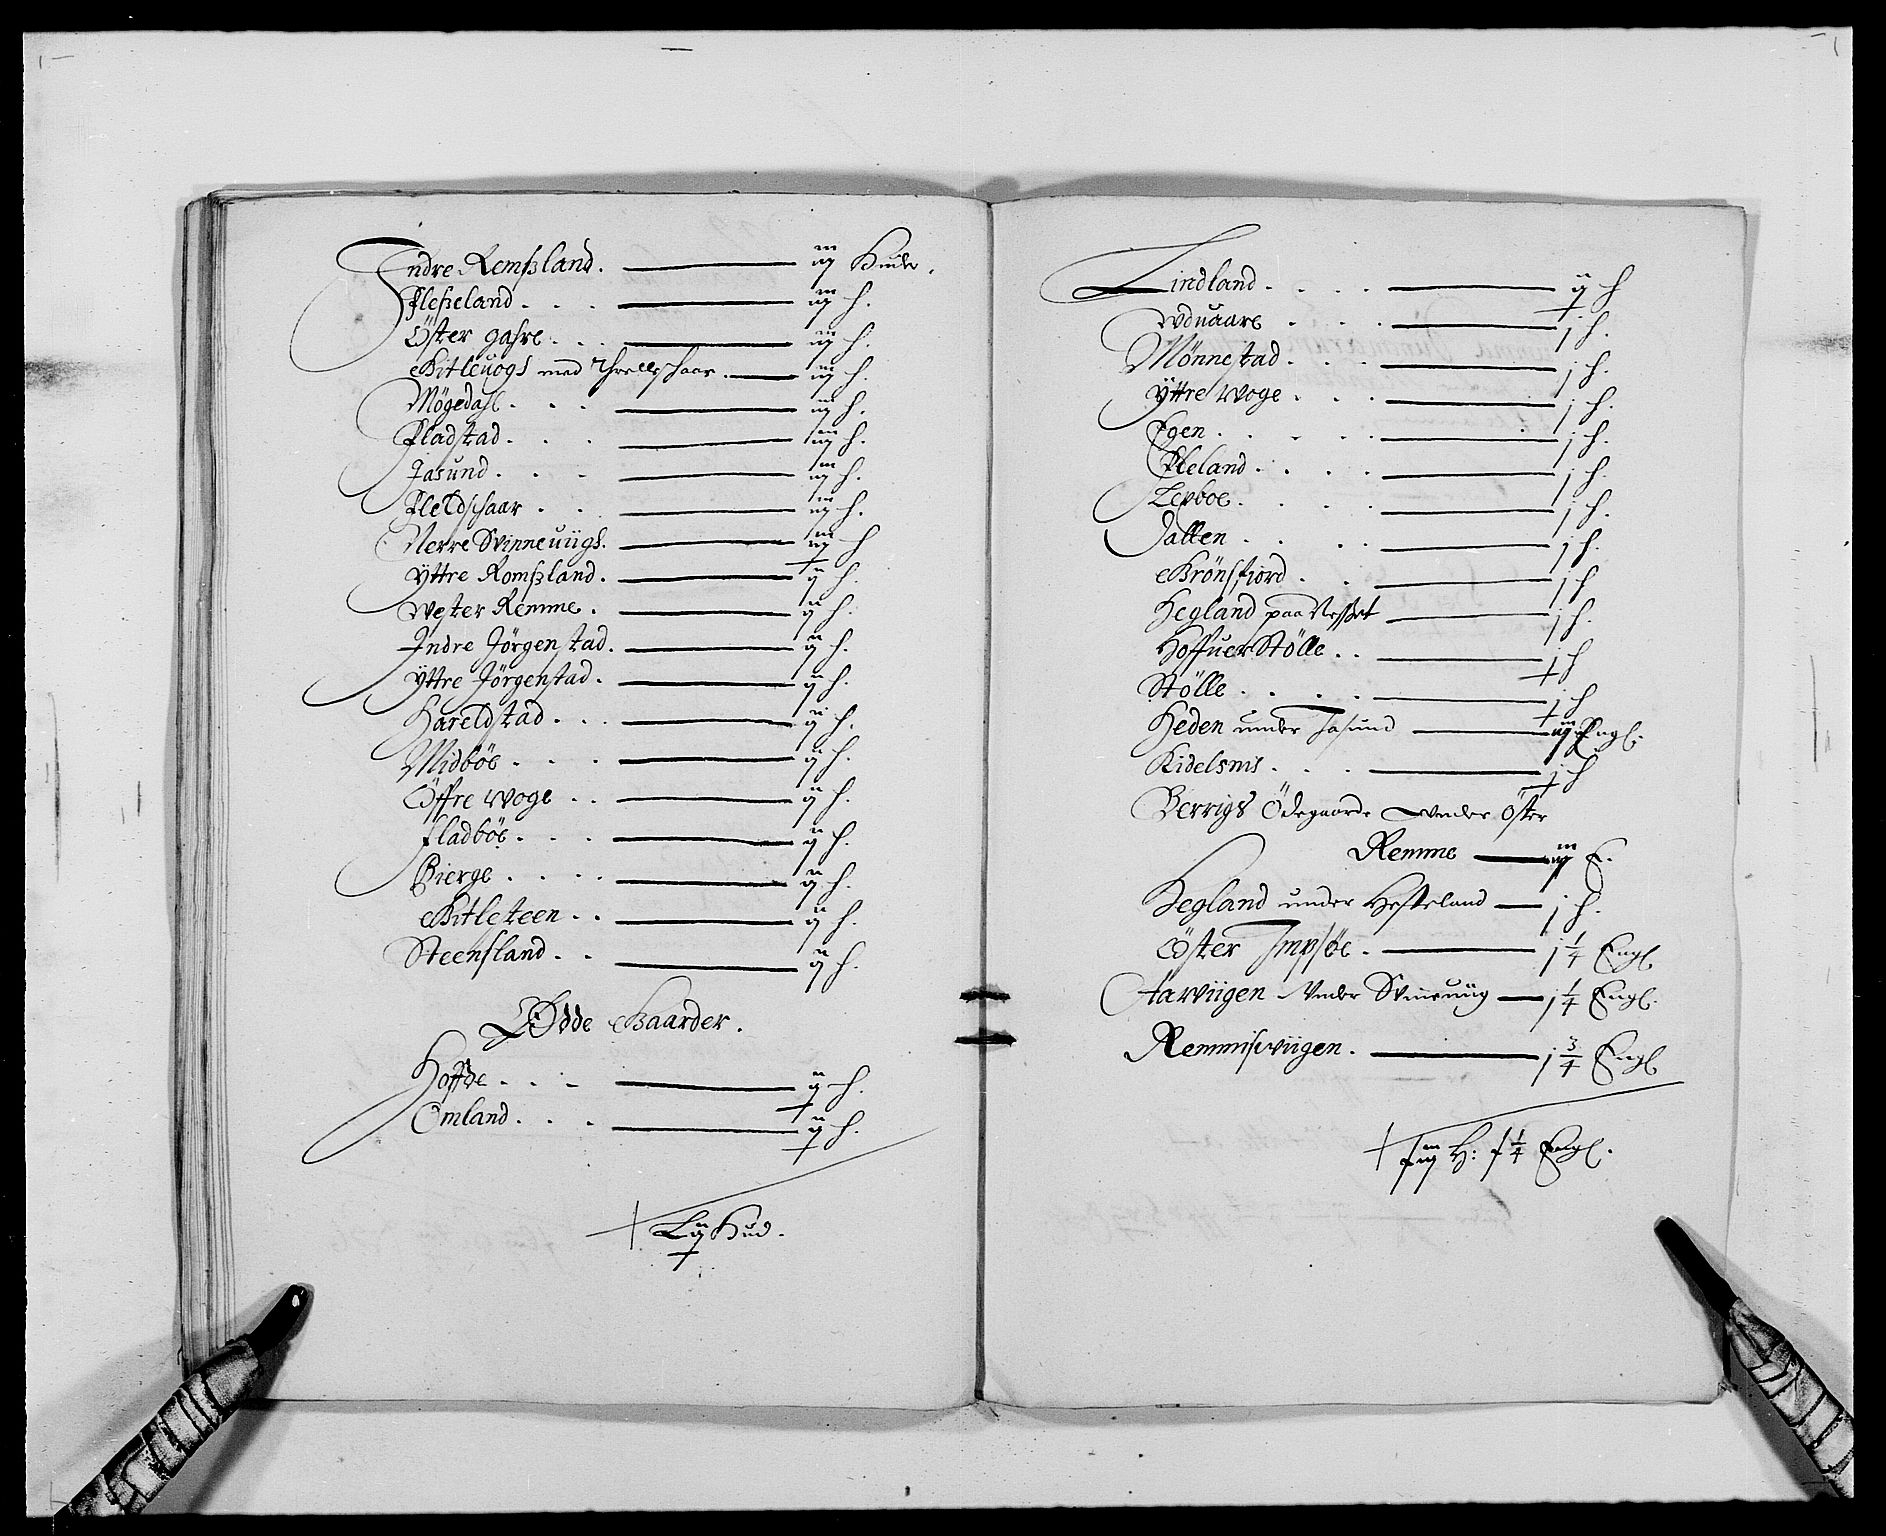 Indre Remszland. iiij Huder.
Fleszeland. iiij h.
Öster gahre. iiij h.
Kitleuogs med Threllschaar. iiij h.
Mögedahl. iiij h.
Fladstad. iiij h.
Jasund. iiij h.
Fleldschaar iiij h.
Nerre Svinneuiigs. iiij h
Yttre Romszland. ij h.
Wester Remme. ij h.
Indre Jörgenstad. ij h.
Yttre Jörgenstad. ij h.
Hareldstad. ij h.
Midböe. ij h.
Öffre Woge ij h.
Fladböe. ij h.
Bierge ij h.
Kitlesteen ij h.
Steensland. ij h.
Ödde Gaarder.
Hoffde ij h.
Omland. ij h.
Lij Hud.
Lindland. ij h
Wduaare j h.
Mönnestad. j h.
Yttre Woge j h.
Egen j h.
Fleland j h.
Lepboe. j h.
Dallen j h.
Brönsfiord j h
Hegland paa Nesset j h.
Hoffuer Stölle j h
Stölle j h
Heden under Jasund iiij Engl.
Kidelsnis j h
Berrigs Ödegaarde under Öster
Remme iiij E.
Hegland under Hesteland j h.
Öster Impsöe. j 1/4 Engl
Aarwiigen Under Svineuiig j 1/4 Engl.
Remmiswiigen. j 3/4 Engl
H: 1/4 Engl.